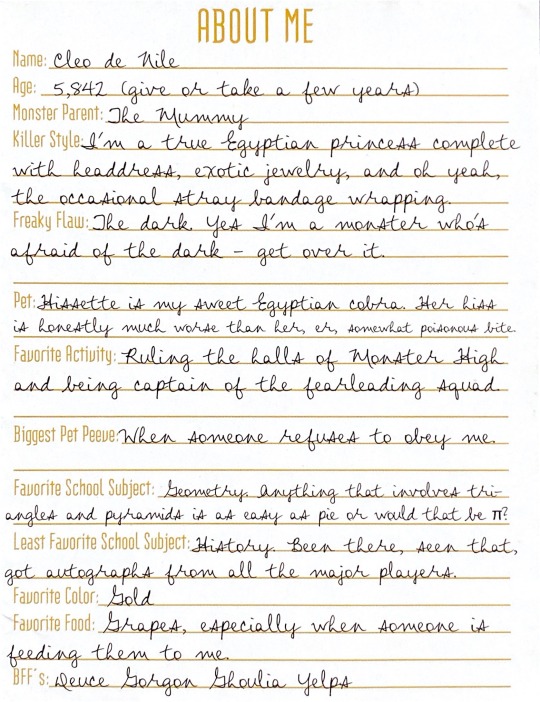 ABOUT ME
Name: Cleo de Nile
Age: 5,842 (give or take a few years)
Monster Parent: The Mummy
Killer Style: I'm a true Egyptian princess complete
with headdress, exotic jewelry, and oh yeah,
the occasional stray bandage wrapping.
Freaky Flaw: The dark. Yes I'm a monster who's
afraid of the dark - get over it.
Pet: Hissette is my sweet Egyptian cobra. Her hiss
is honestly much worse than her, er, somewhat poisonous bite.
Favorite Activity: Ruling the halls of Monster High
and being captain of the fearleading squad.
Biggest Pet Peeve: When someone refuses to obey me.
Favorite School Subject: Geometry. Anything that involves tri-
angles and pyramids is as easy as pie or would that be π?
Least Favorite School Subject: History. Been there, seen that,
got autographs from all the major players.
Favorite Color: Gold
Favorite Food: Grapes, especially when someone is
feeding them to me.
BFF's: Deuce Gorgon Ghoulia Yelps